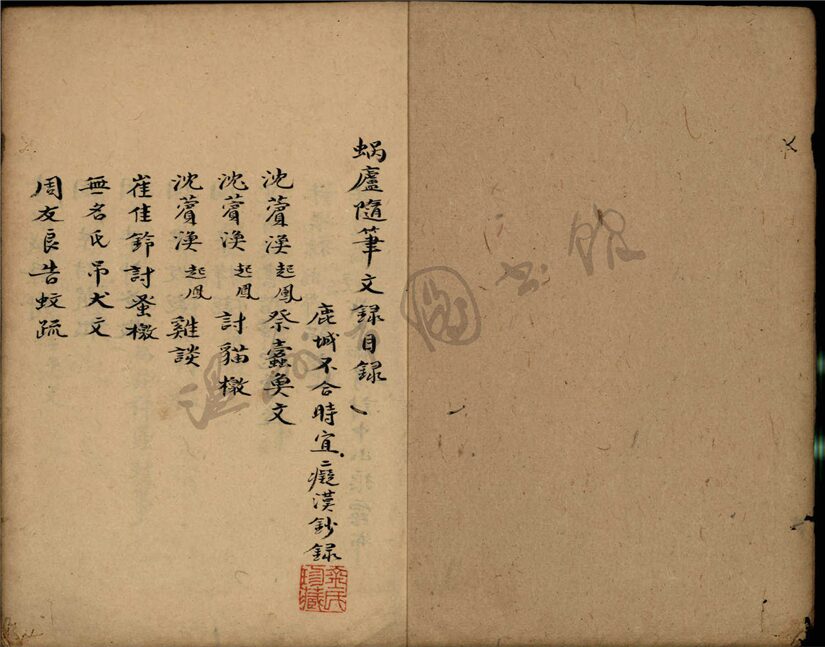 蝸廬隨筆文録目録
鹿城不合時宜二癡漢鈔録
沈薲漁起鳳祭蠹魚文
沈薲漁起鳳討貓檄
沈薲漁起鳳雞談
崔佳鈴討蚤檄
無名氏吊犬文
周友良告蚊疏
珍藏
圖書館